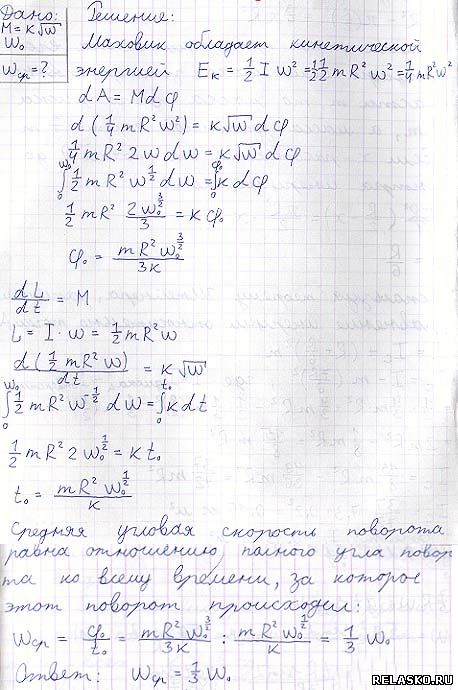 Дано:
M = k√w
w₀
w_ср = ?
Решение:
Маховик обладает кинетической
энергией E_к = 1/2 I w² = 1/2 1/2 mR² w² = 1/4 mR²w²
dA = Mdφ
d(1/4 mR²w²) = k√w dφ
1/4 mR² 2w dw = k√w dφ
∫₀^w₀ 1/2 mR² w^(1/2) dw = ∫₀^φ₀ k dφ
1/2 mR² (2w₀^(3/2))/3 = k φ₀
φ₀ = (mR² w₀^(3/2))/(3k)
dL/dt = M
L = I · w = 1/2 mR²w
d(1/2 mR²w)/dt = k√w
∫₀^w₀ 1/2 mR² w^(-1/2) dw = ∫₀^t₀ k dt
1/2 mR² 2w₀^(1/2) = k t₀
t₀ = (mR² w₀^(1/2))/k
Средняя угловая скорость поворота
равна отношению полного угла повор
та ко всему времени, за которое
этот поворот происходил:
w_ср = φ₀/t₀ = (mR² w₀^(3/2))/(3k) : (mR² w₀^(1/2))/k = 1/3 w₀
Ответ: w_ср = 1/3 w₀
RELASKO.RU